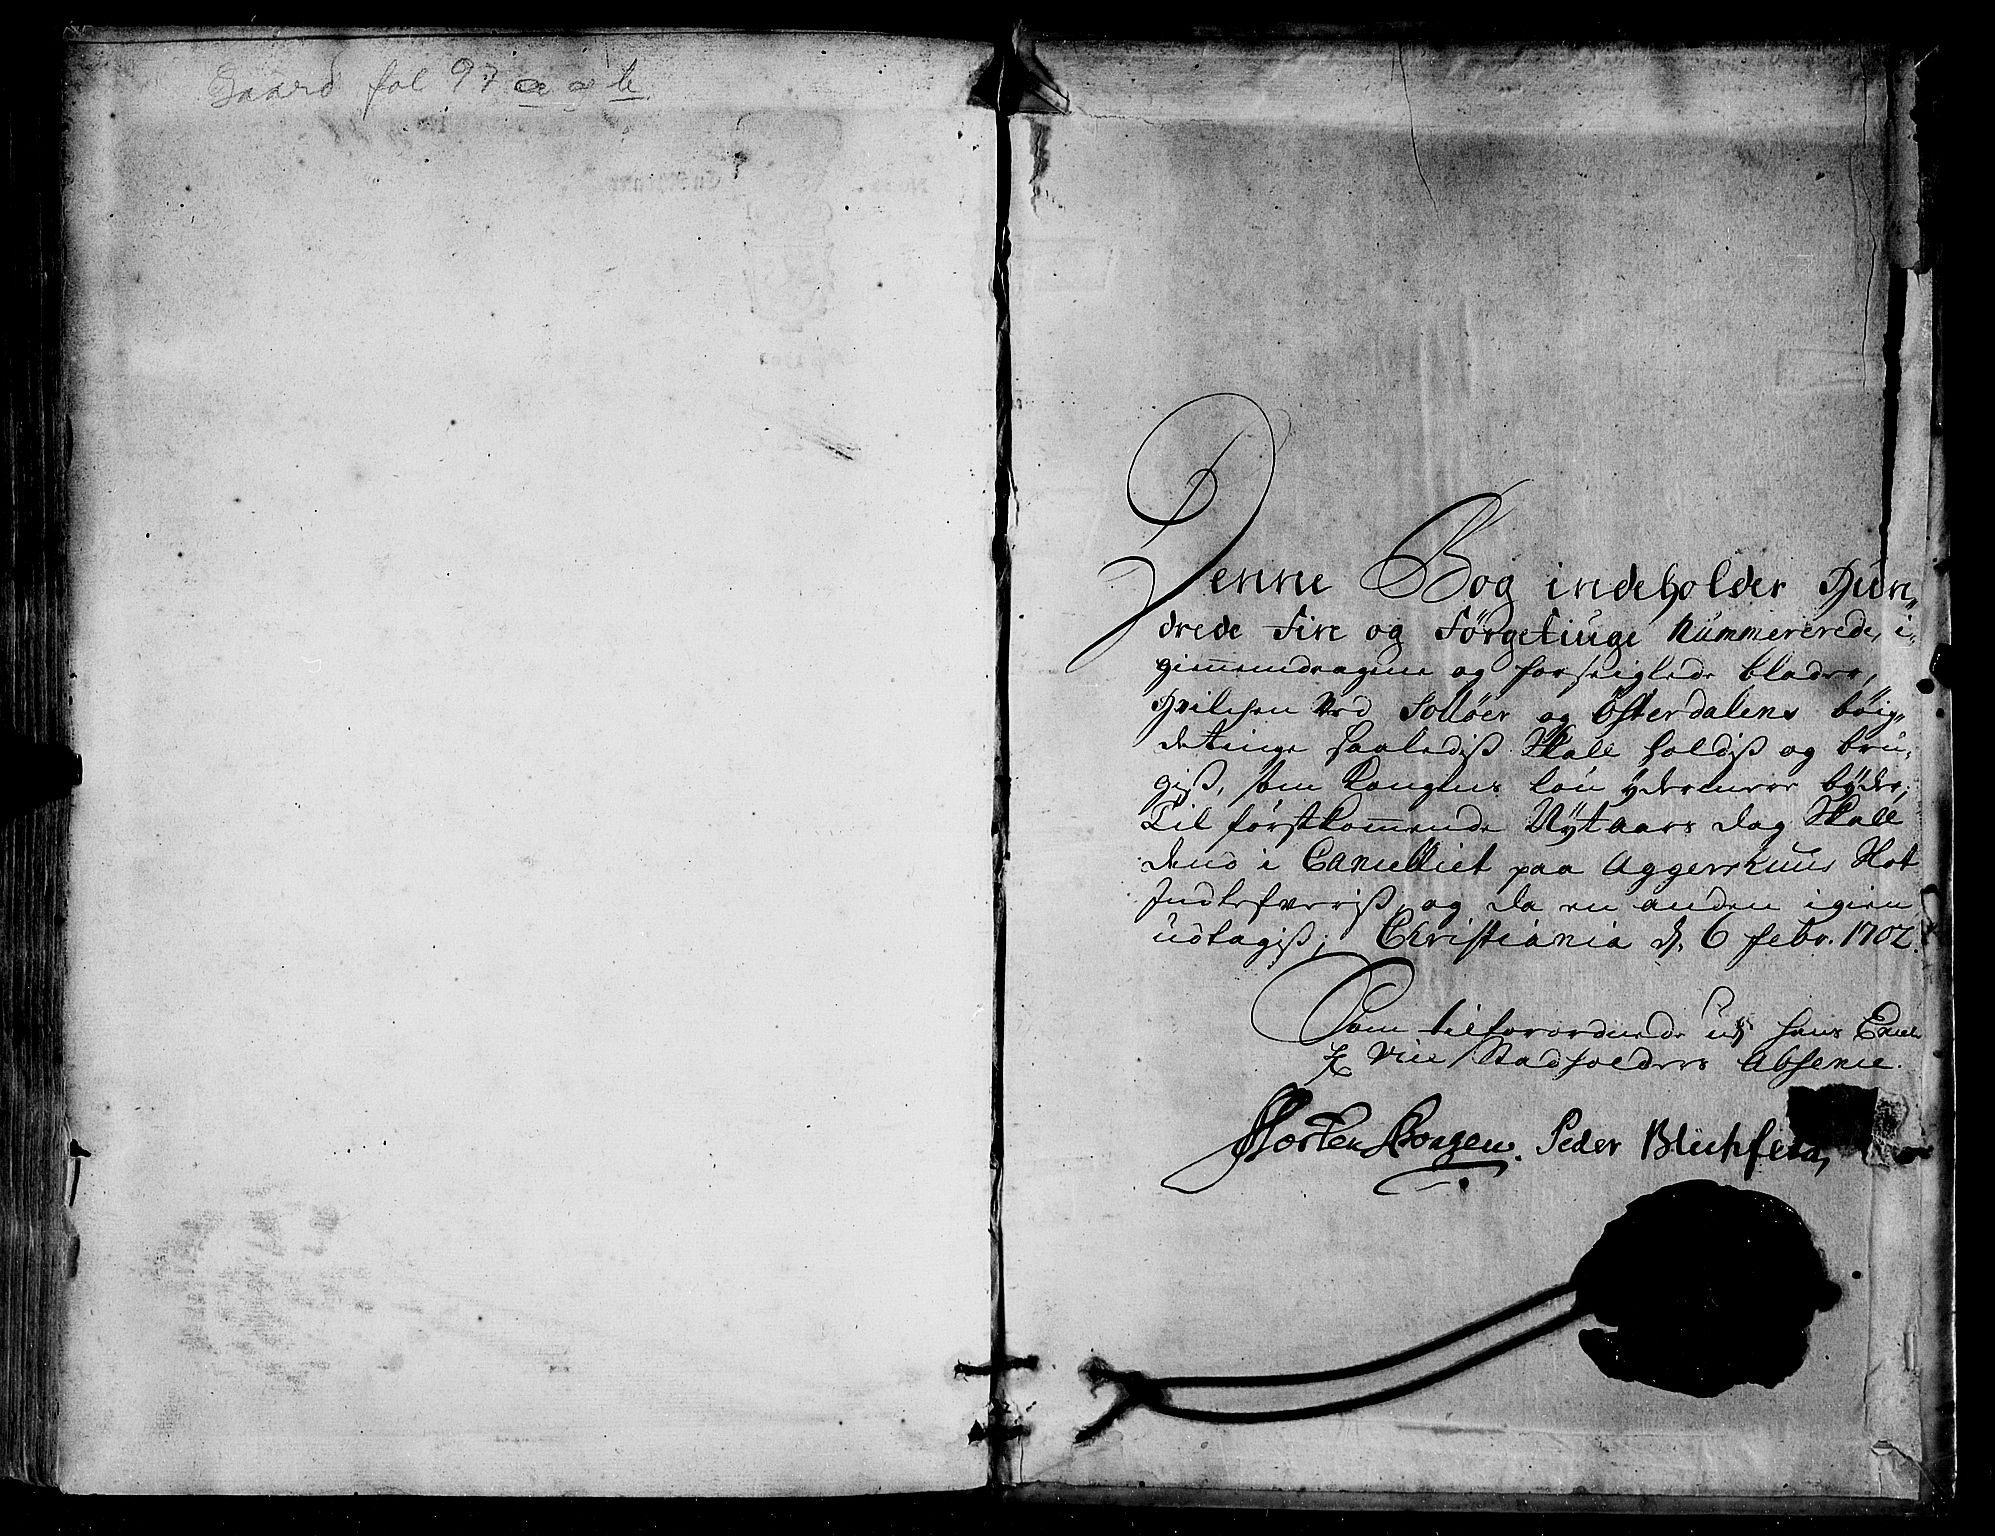 Gaard fol 97 a og b
Denne Bog indeholder Hun,
drede Fire og Førgetiuge Nummererede, i-
giemmendragne og forseiglede blade,
Hvilchen ved Solløer og Østerdalens böig-
detinge saaledis skall holdis og bru-
gis, som Kongens lou ydermere byder,
Til førstkommende Nytaars dag skall
dend i Cancelliet paa Aggershuus Slot
Indlefveris, og da en anden igien
udtagis; Christiania d. 6 febr. 1702.
Som tilforordnede udj hans Excell
Vice Stadholders Absence.
Morten Borgen. Peder Blichfeld,